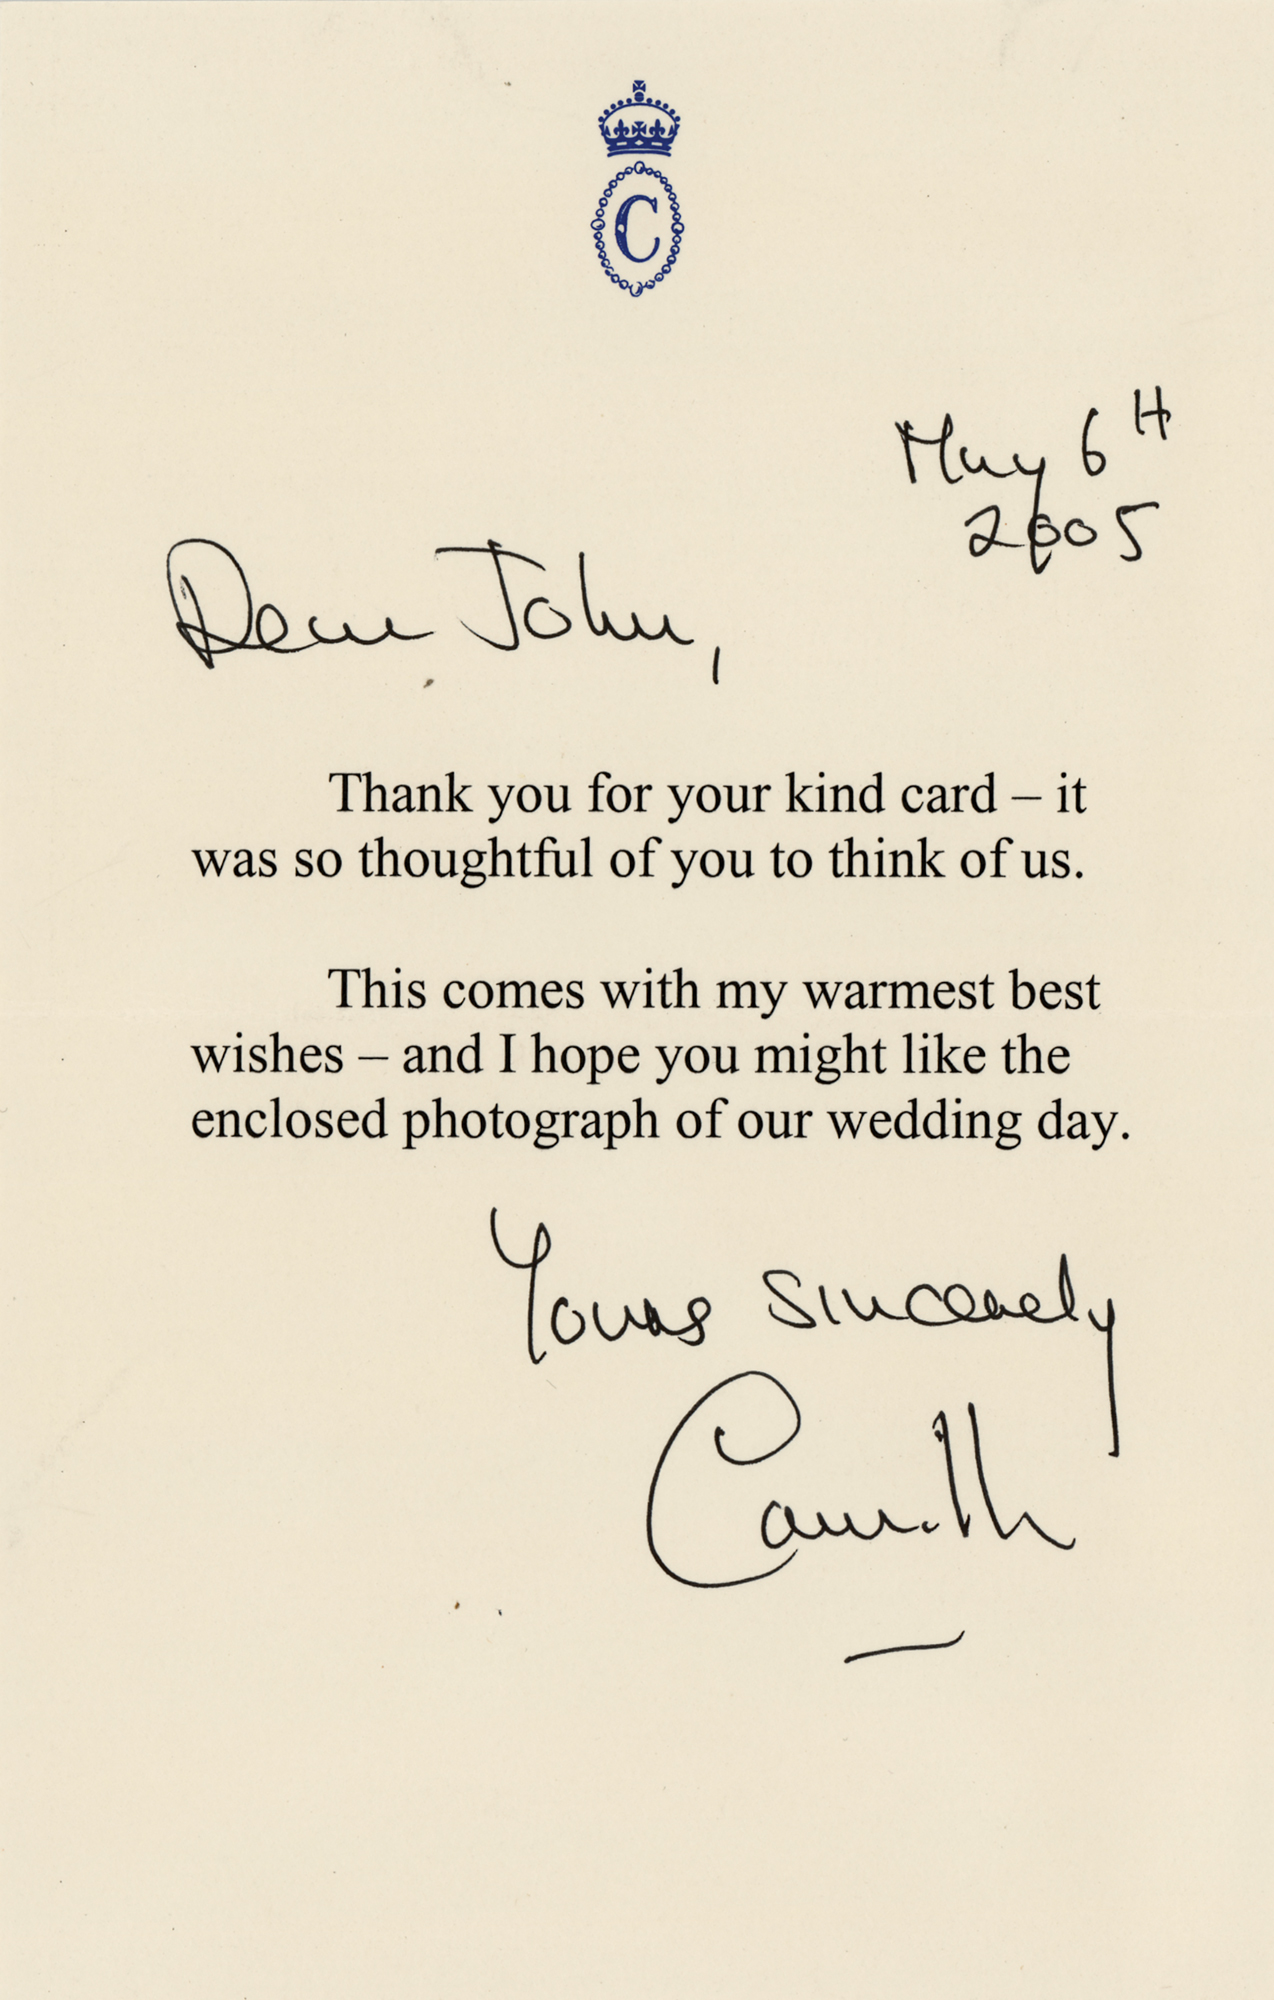 C
May 6th
2005
Dear John,
Thank you for your kind card – it
was so thoughtful of you to think of us.
This comes with my warmest best
wishes – and I hope you might like the
enclosed photograph of our wedding day.
Yours sincerely
Camilla